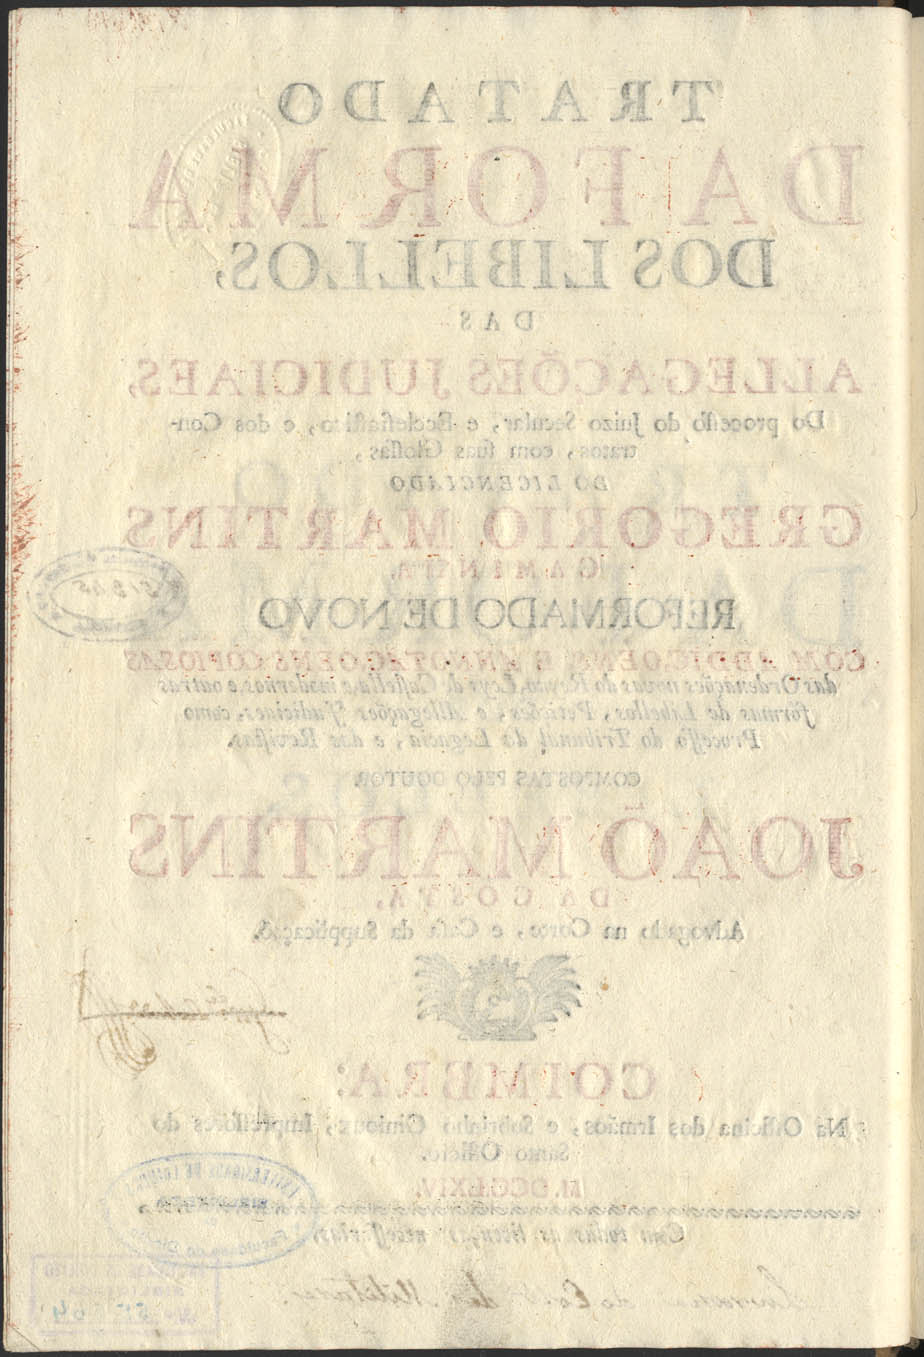 TRATADO
DA FORMA
DOS LIBELLOS,
DAS
ALLEGAÇÕES JUDICIAES,
Do processo do Juizo Secular, e Ecclesiastico, e dos Con-
tratos, com suas Glossas,
DO LICENCIADO
GREGORIO MARTINS
CAMINHA,
REFORMADO DE NOVO
COM ADDIÇOENS, E ANNOTAÇOENS COPIOSAS
das Ordenações novas do Reyno, Leys de Castella, e modernos, e outras
fórmas de Libellos, Petições, e Allegações Judiciaes, como
Processo do Tribunal da Legacia, e das Revistas.
COMPOSTAS PELO DOUTOR
JOAÕ MARTINS
DA COSTA,
Advogado na Corte, e Casa da Supplicaçaõ.
COIMBRA:
Na Officina dos Irmãos, e Sobrinho Ginioux, Impressores do
Santo Officio.
M.DCCLXIV.
Com todas as licenças necessarias.
UNIVERSIDADE DE COIMBRA
Faculdade de Direito